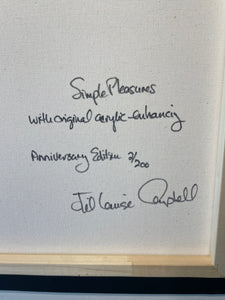 Simple Pleasures
with original acrylic enhancing
Anniversary Edition 2/200
Jill Louise Campbell